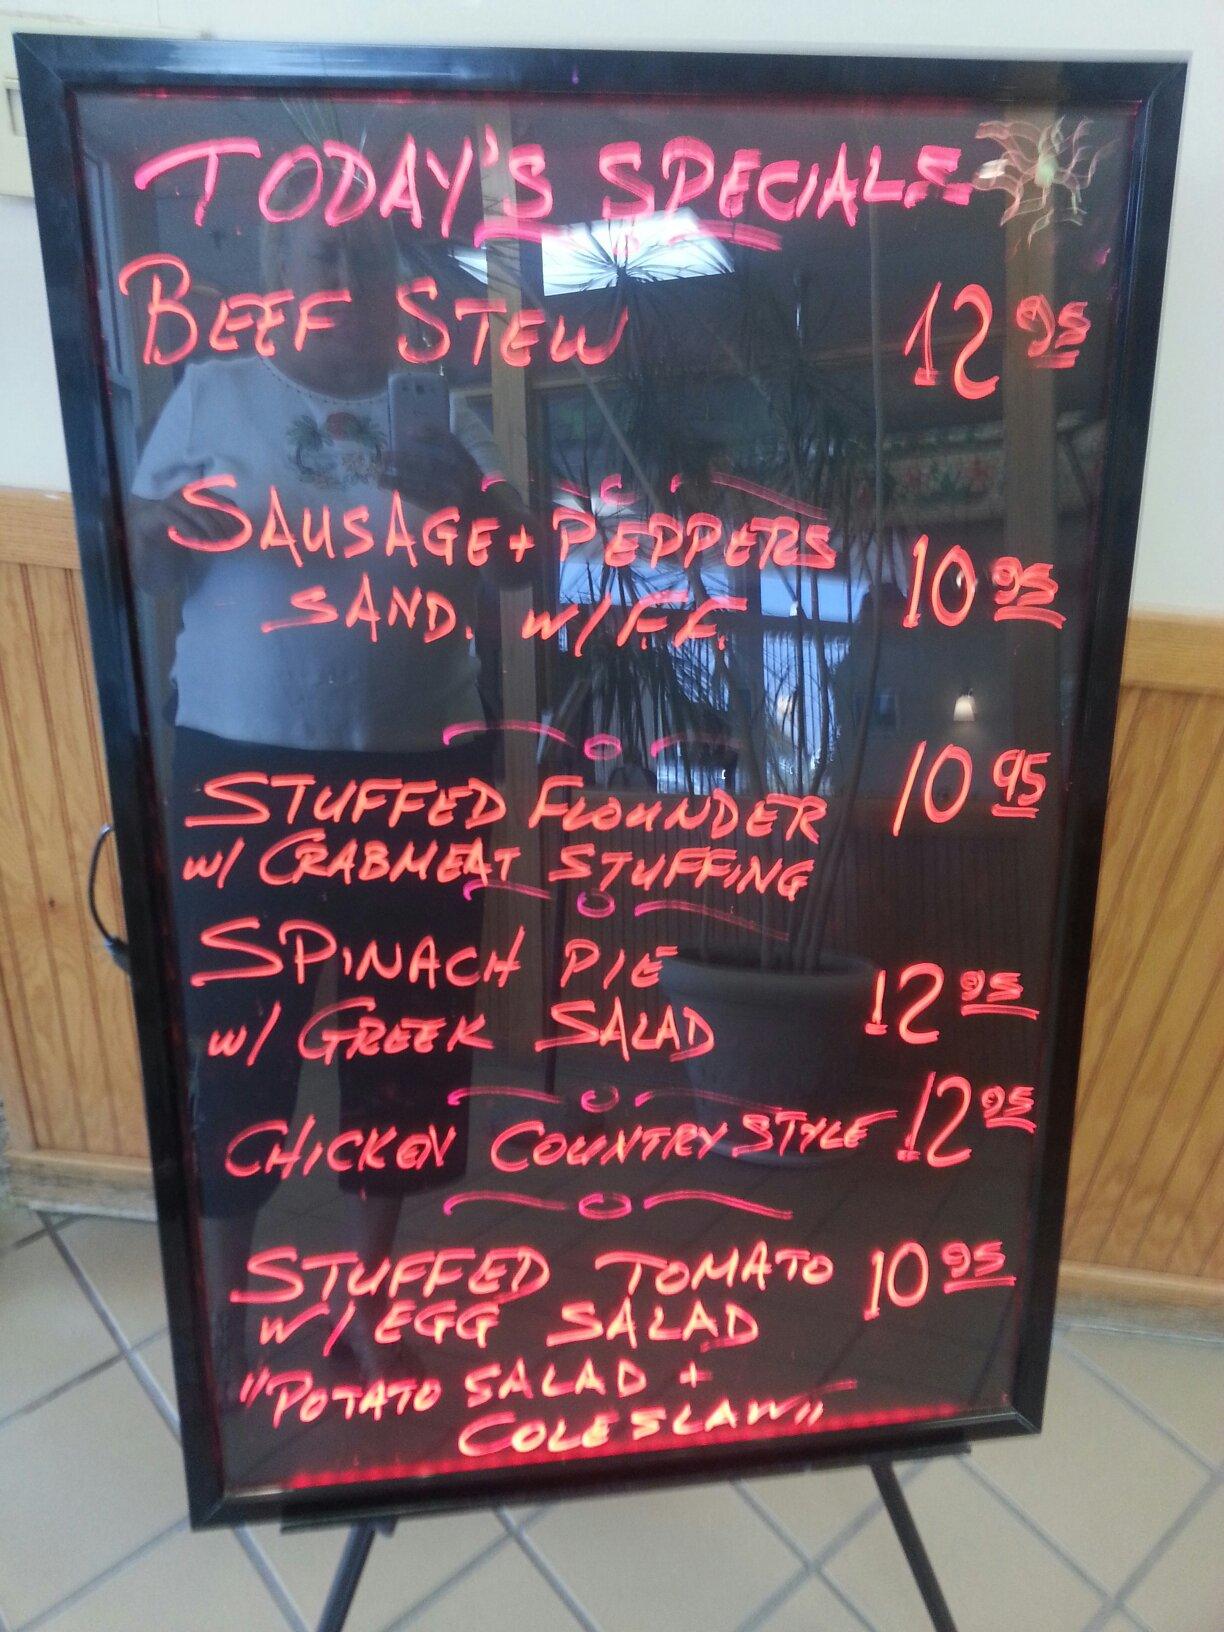 TODAY'S SPECIALS
BEEF STEW 12 95
SAUSAGE + PEPPERS
SAND. W/ F.F. 10 95
STUFFED FLOUNDER 10 95
W/ CRABMEAT STUFFING
SPINACH PIE
W/ GREEK SALAD 12 95
CHICKEN COUNTRY STYLE 12 95
STUFFED TOMATO 10 95
W/ EGG SALAD
"POTATO SALAD +
COLESLAW"